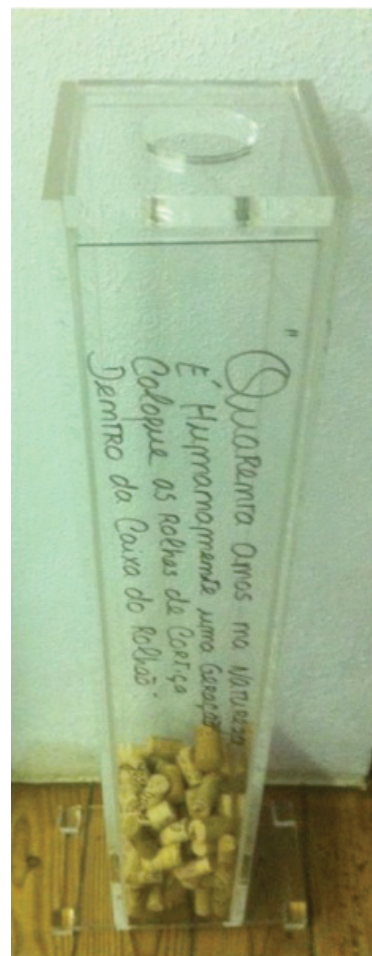 "Quarenta anos na Natureza
É Humanamente uma Geração
Coloque as Rolhas de Cortiça
Dentro da Caixa do Rolhão"